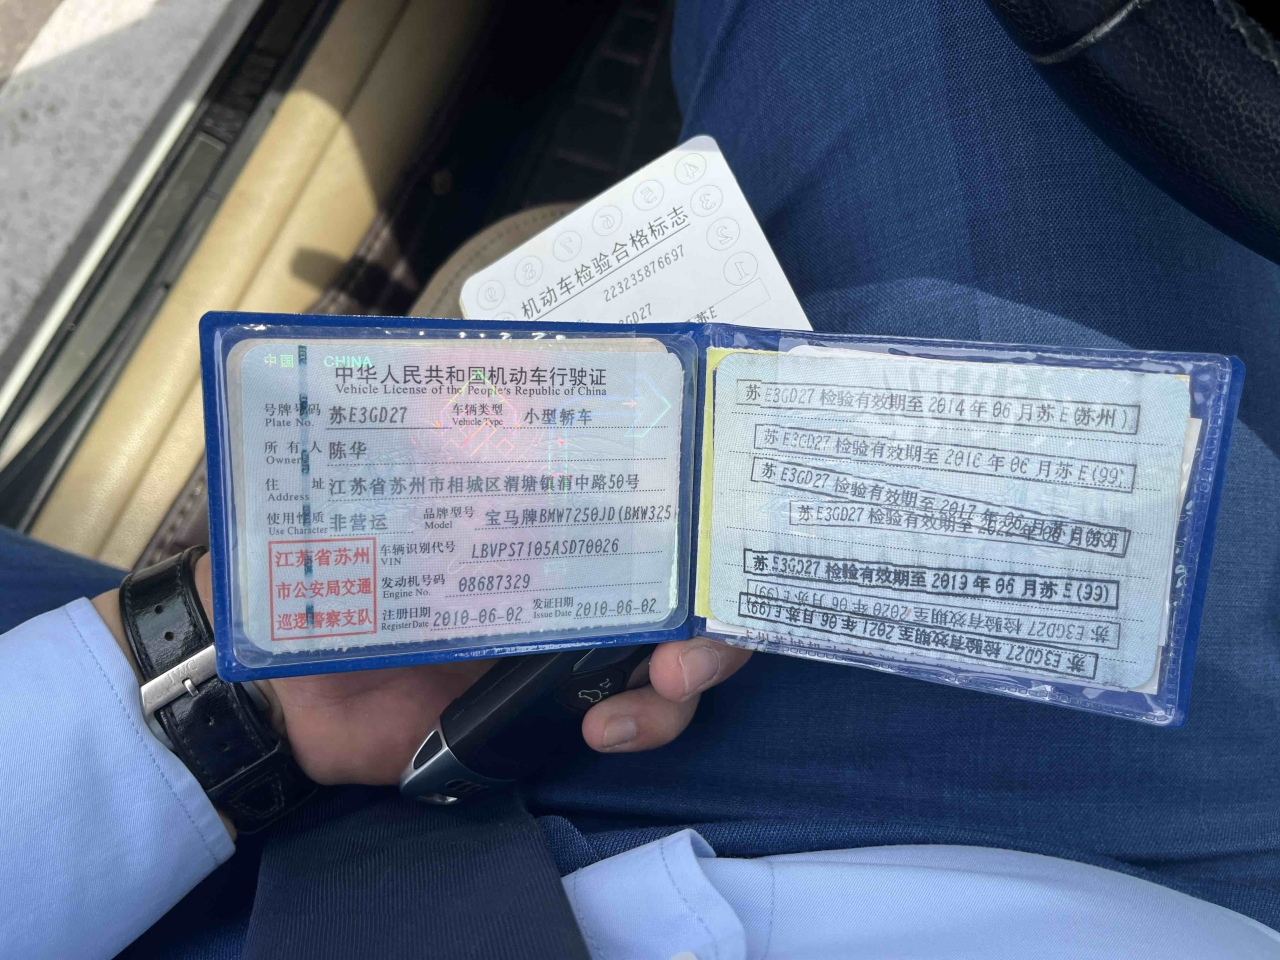 机动车检验合格标志
223235876697
苏E
中国 CHINA
中华人民共和国机动车行驶证
Vehicle License of the People's Republic of China
号牌号码 苏E3GD27 车辆类型 小型轿车
Plate No. Vehicle Type
所有人 陈华
Owner
住址 江苏省苏州市相城区渭塘镇渭中路50号
Address
使用性质 非营运 品牌型号 宝马牌BMW7250JD(BMW325
Use Character Model
江苏省苏州
市公安局交通
巡逻警察支队
车辆识别代号 LBVPS7105ASD70026
VIN
发动机号码 08687329
Engine No.
注册日期 2010-06-02 发证日期 2010-06-02
Register Date Issue Date
苏E3GD27 检验有效期至2014年06月苏E(苏州)
苏E3GD27 检验有效期至2016年06月苏E(99)
苏E3GD27 检验有效期至2017年06月苏
苏E3GD27 检验有效期至2022年06月苏
苏E3GD27 检验有效期至2019年06月苏E(99)
苏E3GD27 检验有效期至2020年06月苏E(99)
苏E3GD27 检验有效期至2021年06月苏E(99)